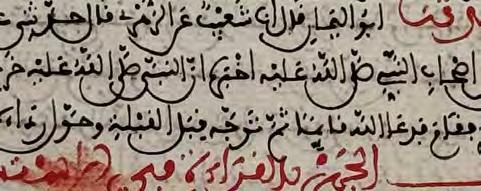 ابو اليمان قال انا شعيب عن الزهري قال حدثني
اصحاب النبي صلى الله عليه اخبره ان النبي صلى الله عليه
فقام فدعا الله قايما ثم توجه قبل القبلة وحول رداءه
الجهر بالقراءة في